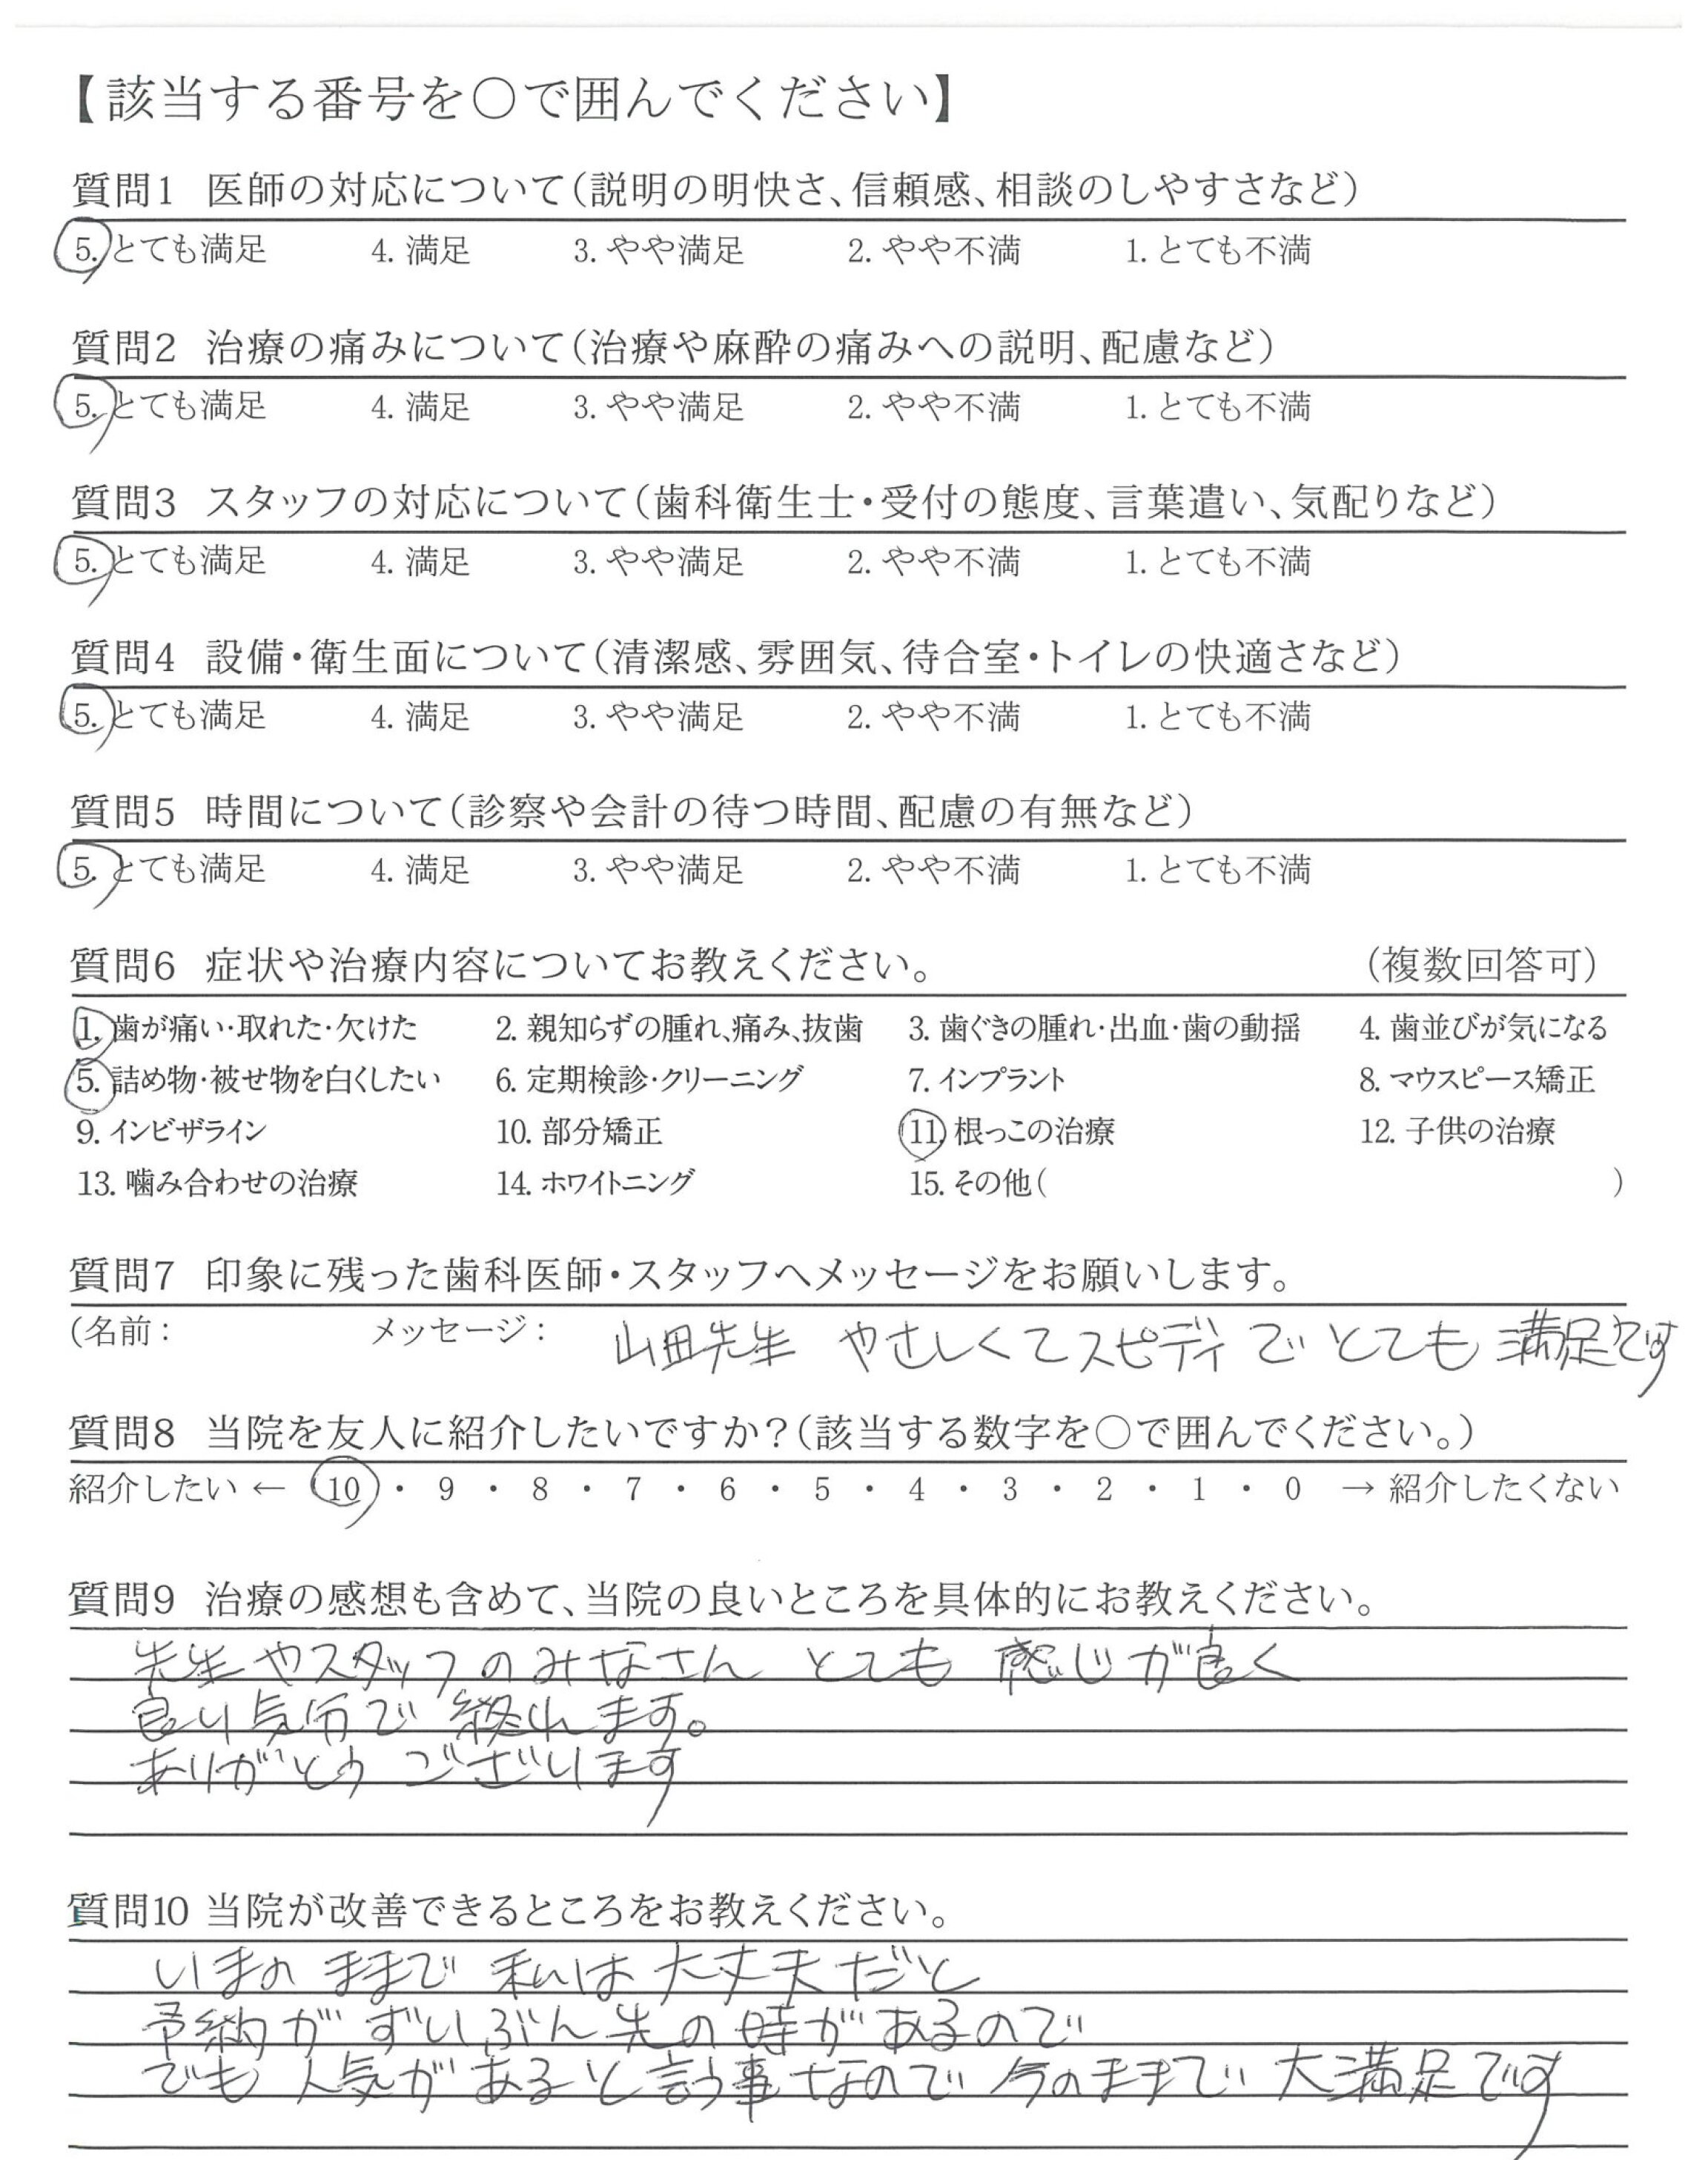 【該当する番号を〇で囲んでください】
質問1 医師の対応について(説明の明快さ、信頼感、相談のしやすさなど)
5. とても満足 4. 満足 3. やや満足 2. やや不満 1. とても不満
質問2 治療の痛みについて(治療や麻酔の痛みへの説明、配慮など)
5. とても満足 4. 満足 3. やや満足 2. やや不満 1. とても不満
質問3 スタッフの対応について(歯科衛生士・受付の態度、言葉遣い、気配りなど)
5. とても満足 4. 満足 3. やや満足 2. やや不満 1. とても不満
質問4 設備・衛生面について(清潔感、雰囲気、待合室・トイレの快適さなど)
5. とても満足 4. 満足 3. やや満足 2. やや不満 1. とても不満
質問5 時間について(診察や会計の待つ時間、配慮の有無など)
5. とても満足 4. 満足 3. やや満足 2. やや不満 1. とても不満
質問6 症状や治療内容についてお教えください。 (複数回答可)
1. 歯が痛い・取れた・欠けた 2. 親知らずの腫れ、痛み、抜歯 3. 歯ぐきの腫れ・出血・歯の動揺 4. 歯並びが気になる
5. 詰め物・被せ物を白くしたい 6. 定期検診・クリーニング 7. インプラント 8. マウスピース矯正
9. インビザライン 10. 部分矯正 11. 根っこの治療 12. 子供の治療
13. 噛み合わせの治療 14. ホワイトニング 15. その他( )
質問7 印象に残った歯科医師・スタッフへメッセージをお願いします。
(名前: メッセージ: 山田先生 やさしくてスピディで とても 満足です
質問8 当院を友人に紹介したいですか?(該当する数字を〇で囲んでください。)
紹介したい ← 10 ・ 9 ・ 8 ・ 7 ・ 6 ・ 5 ・ 4 ・ 3 ・ 2 ・ 1 ・ 0 → 紹介したくない
質問9 治療の感想も含めて、当院の良いところを具体的にお教えください。
先生やスタッフのみなさん とても 感じが良く
良い気分で 終れます。
ありがとう ございます
質問10 当院が改善できるところをお教えください。
いまの ままで 私は 大丈夫だと
予約が ずいぶん先の 時があるので
でも 人気が あると言う事なので 今のままで 大満足です